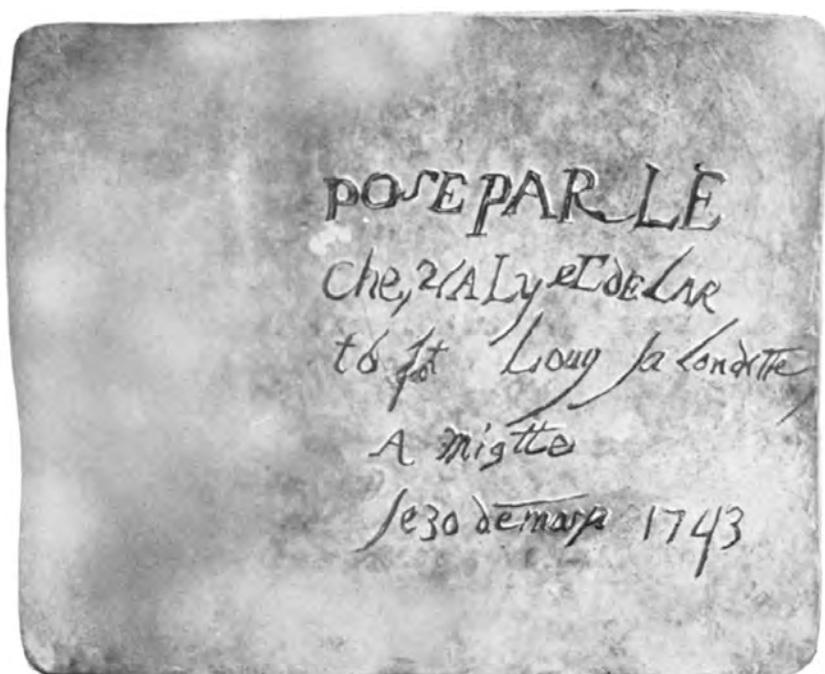 POSE PAR LE
ChevALyeT dE LAR
to Louy la Londette,
A miotte
le 30 de mars 1743